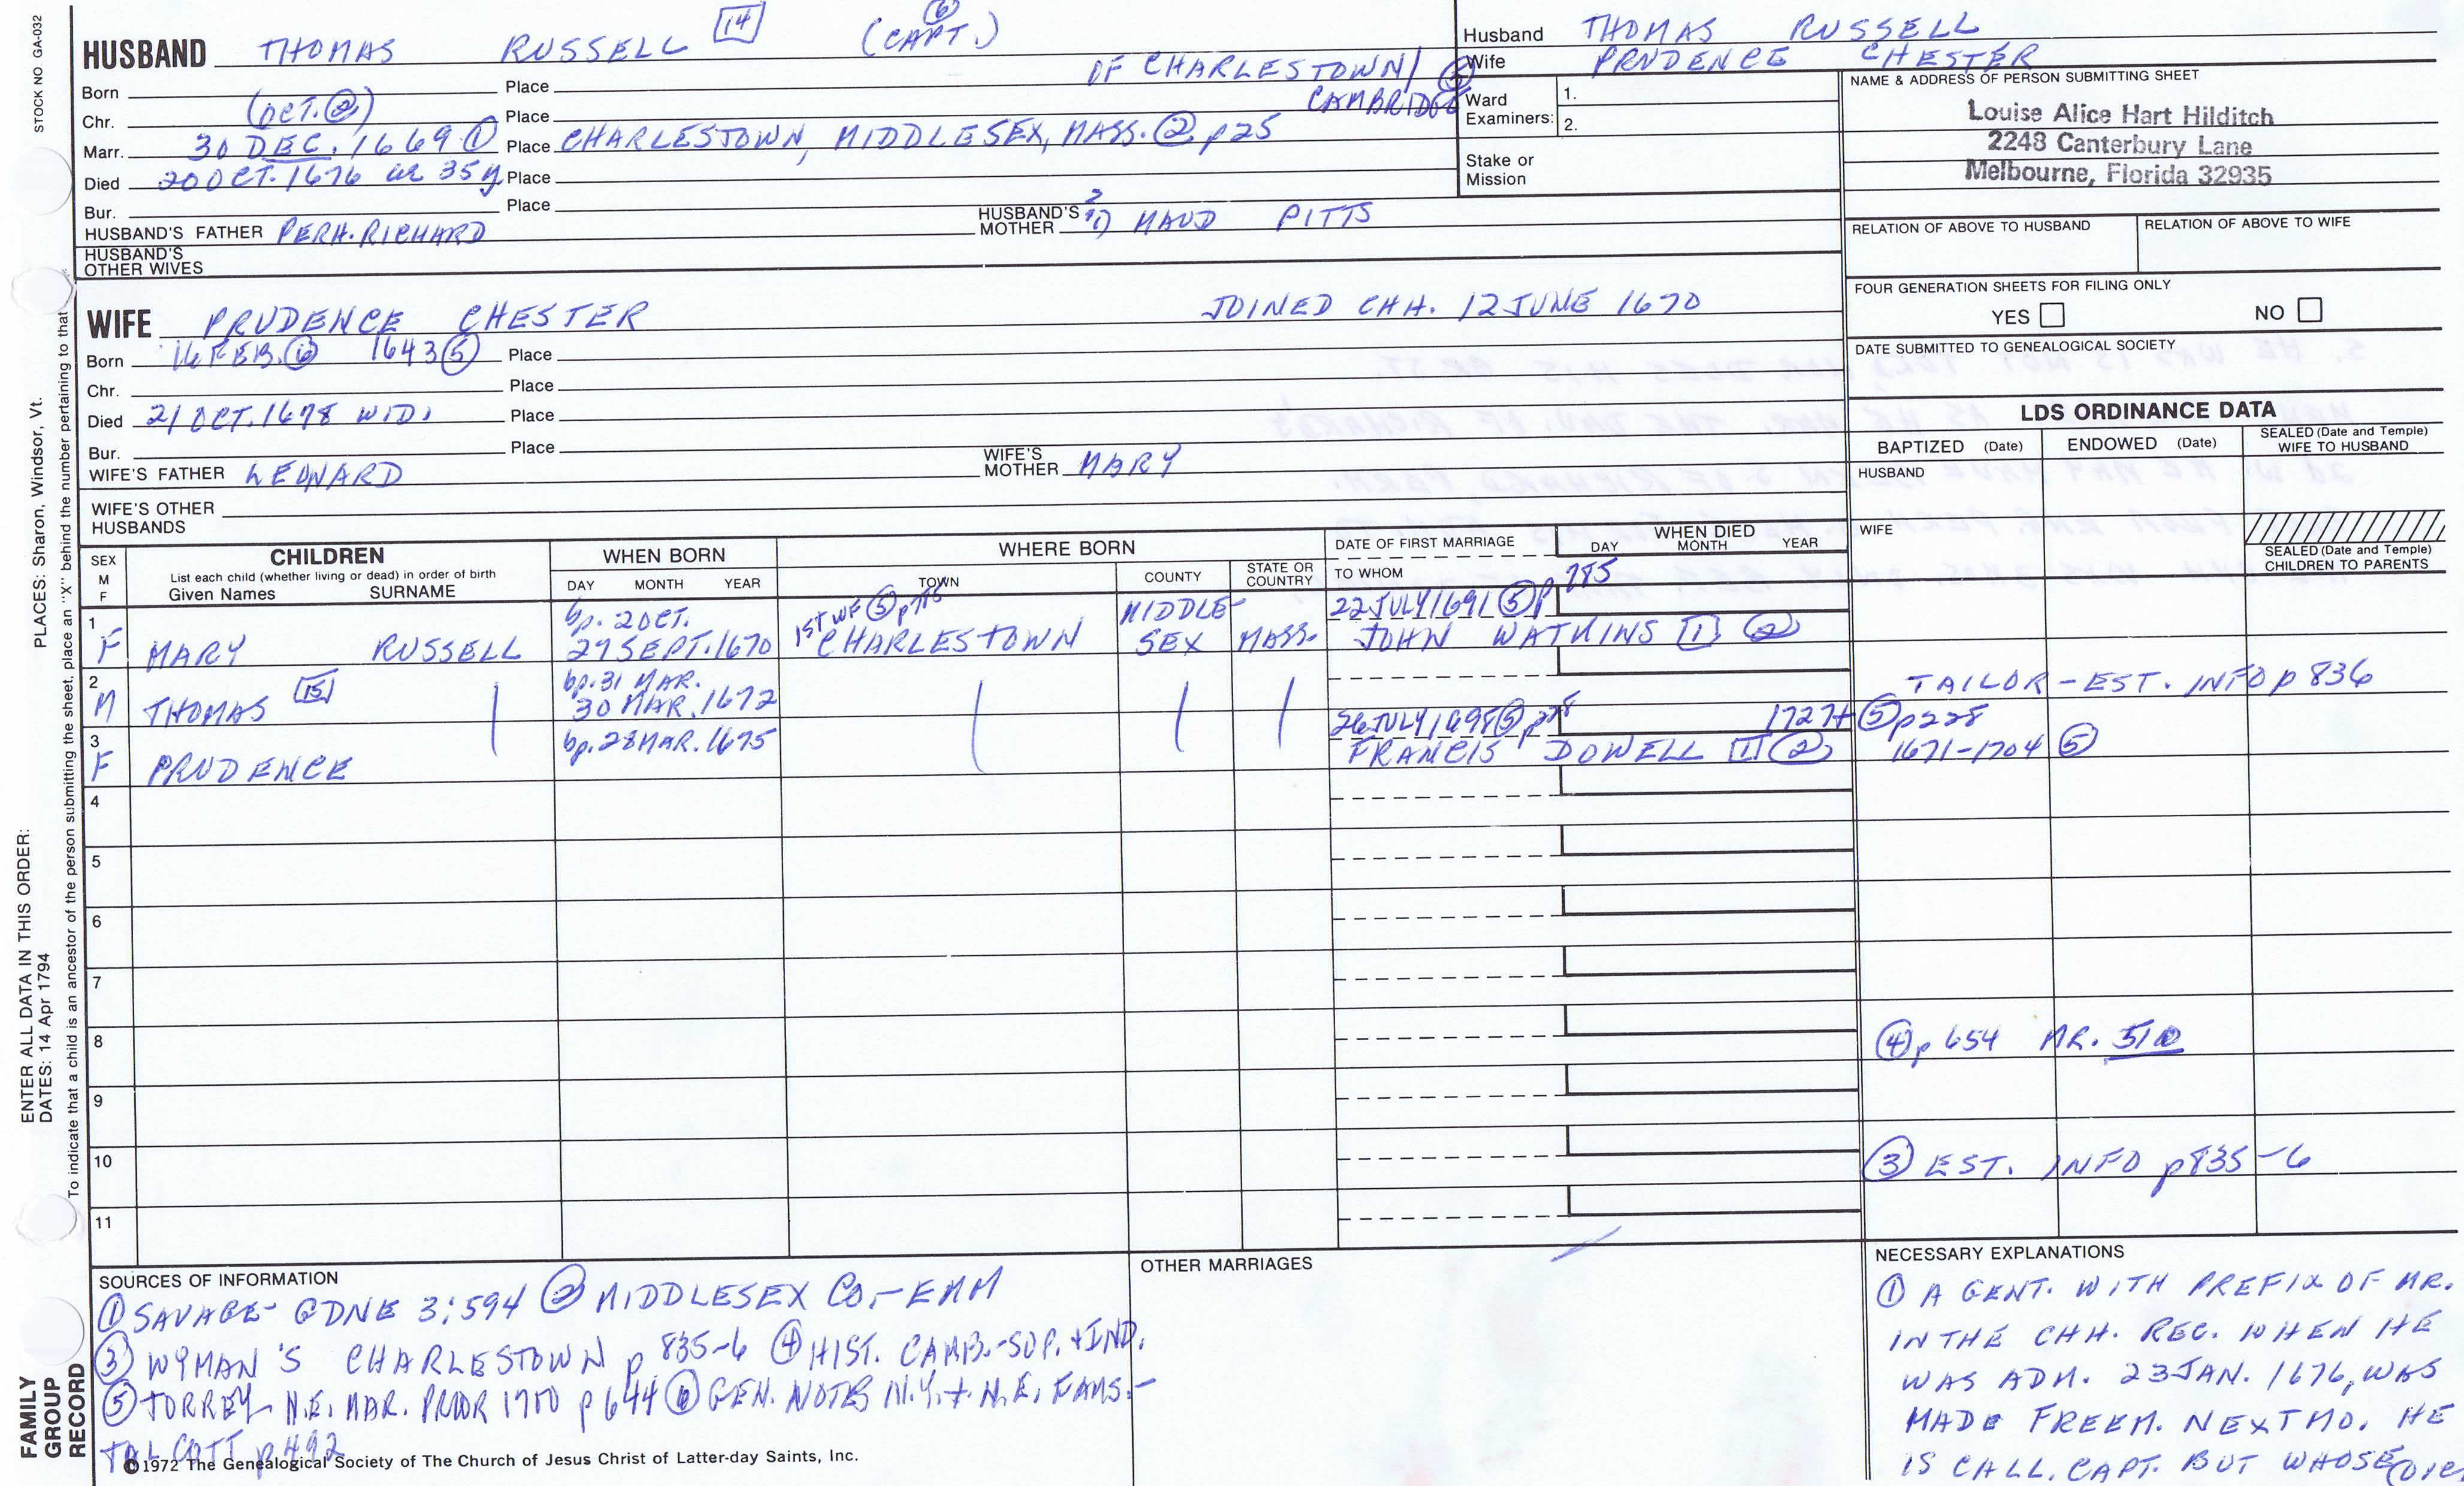 STOCK NO GA-032
PLACES: Sharon, Windsor, Vt.
ENTER ALL DATA IN THIS ORDER:
DATES: 14 Apr 1794
To indicate that a child is an ancestor of the person submitting the sheet, place an "X" behind the number pertaining to that
FAMILY GROUP RECORD
HUSBAND THOMAS RUSSELL 14 (CAPT.) 6
OF CHARLESTOWN/
CAMBRIDGE
Born Place
Chr. (OCT. 2) Place
Marr. 30 DEC. 1669 1 Place CHARLESTOWN, MIDDLESEX, MASS. 2 p25
Died 20 OCT. 1676 ae 35 y Place
Bur. Place
HUSBAND'S FATHER PERH. RICHARD HUSBAND'S MOTHER ?1) MAUD PITTS
HUSBAND'S OTHER WIVES
Husband THOMAS RUSSELL
Wife PRUDENCE CHESTER
Ward Examiners: 1.
2.
Stake or Mission
NAME & ADDRESS OF PERSON SUBMITTING SHEET
Louise Alice Hart Hilditch
2248 Canterbury Lane
Melbourne, Florida 32935
RELATION OF ABOVE TO HUSBAND RELATION OF ABOVE TO WIFE
FOUR GENERATION SHEETS FOR FILING ONLY
YES NO
DATE SUBMITTED TO GENEALOGICAL SOCIETY
WIFE PRUDENCE CHESTER JOINED CHH. 12 JUNE 1670
Born 16 FEB. 6 1643 5 Place
Chr. Place
Died 21 OCT. 1678 WID. Place
Bur. Place
WIFE'S FATHER LEONARD WIFE'S MOTHER MARY
WIFE'S OTHER HUSBANDS
LDS ORDINANCE DATA
BAPTIZED (Date) ENDOWED (Date) SEALED (Date and Temple) WIFE TO HUSBAND
HUSBAND
WIFE
SEALED (Date and Temple) CHILDREN TO PARENTS
SEX M F CHILDREN List each child (whether living or dead) in order of birth Given Names SURNAME
WHEN BORN DAY MONTH YEAR
WHERE BORN TOWN COUNTY STATE OR COUNTRY
DATE OF FIRST MARRIAGE TO WHOM
WHEN DIED DAY MONTH YEAR
1 bp. 2 OCT. 1ST WF 5 p785 MIDDLE- 22 JULY 1691 5 p 785
F MARY RUSSELL 29 SEPT. 1670 CHARLESTOWN SEX MASS. JOHN WATKINS 1 2
2 bp. 31 MAR. TAILOR - EST. INFO p 836
M THOMAS 15 30 MAR. 1672
3 bp. 28 MAR. 1675 26 JULY 1698 5 p 228 1727+ 5 p228
F PRUDENCE FRANCIS DOWELL 1 2 1671-1704 5
4
5
6
7
8 4 p 654 MR. 510
9
10 3 EST. INFO p835-6
11
SOURCES OF INFORMATION
1 SAVAGE- GDNE 3:594 2 MIDDLESEX CO.- EMM
3 WYMAN'S CHARLESTOWN p 835-6 4 HIST. CAMB.-SUP. + IND.
5 TORREY N.E. MAR. PRIOR 1700 p 644 6 GEN. NOTES N.Y. + N.E. FAMS.-
TALCOTT p492
©1972 The Genealogical Society of The Church of Jesus Christ of Latter-day Saints, Inc.
OTHER MARRIAGES
NECESSARY EXPLANATIONS
1 A GENT. WITH PREFIX OF MR.
IN THE CHH. REC. WHEN HE
WAS ADM. 23 JAN. 1676, WAS
MADE FREEM. NEXT MO. HE
IS CALL. CAPT. BUT WHOSE